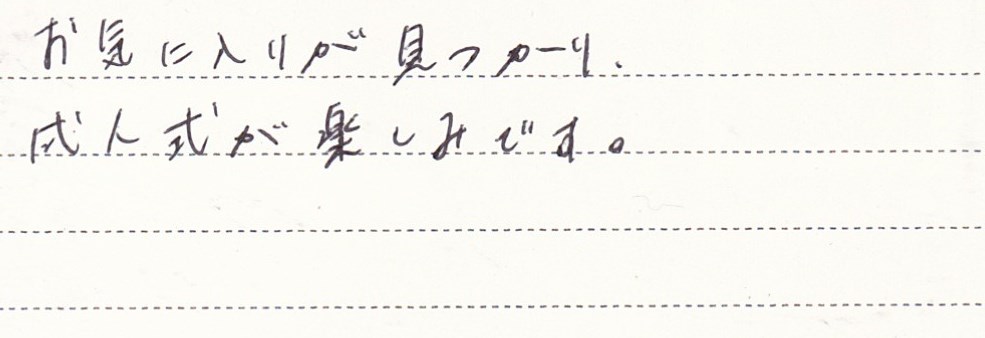 お気に入りが見つかり、
成人式が楽しみです。